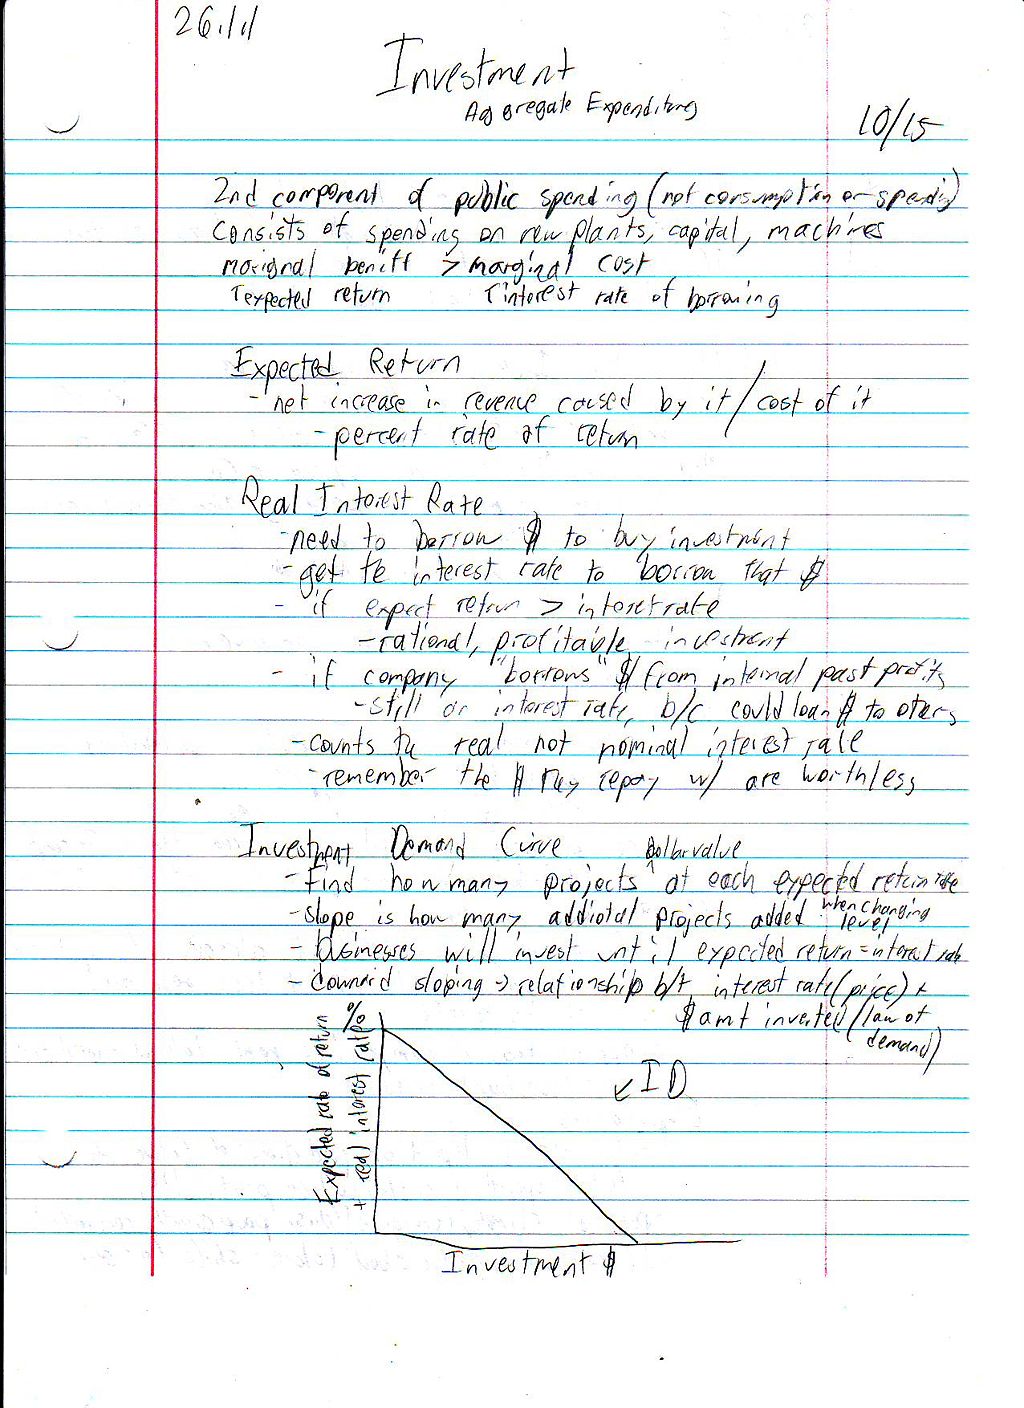 26.1.1
Investment
Aggregate Expenditures
10/15
2nd component of public spending (not consumption or spending)
consists of spending on new plants, capital, machines
marginal benift > marginal cost
↑expected return ↑interest rate of borrowing
Expected Return
- net increase in revenue caused by it / cost of it
- percent rate of return
Real Interest Rate
- need to borrow $ to buy investment
- get the interest rate to borrow that $
- if expect return > interest rate
- rational, profitable investment
- if company "borrows" $ from internal past profits
- still an interest rate, b/c could loan $ to oters
- counts the real not nominal interest rate
- remember the $ they repay w/ are worth less
Investment Demand Curve
dollar value
- Find how many projects ^ at each expected return rate
- slope is how many addiotal projects added when changing level
- businesses will invest until expected return = interest rate
- downard sloping → relationship b/t interest rate (price) +
$ amt invested (law of demand)
%
Expected rate of return
+ real interest rate
↙ ID
Investment $